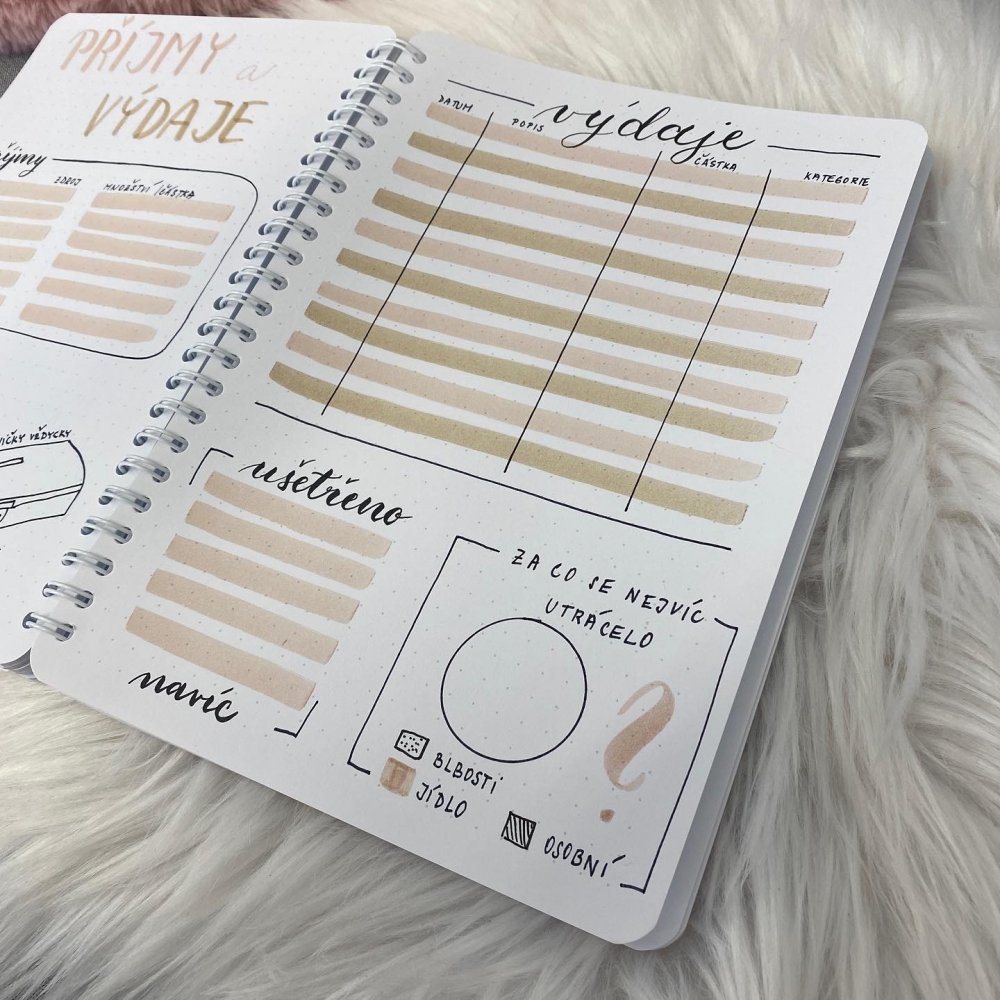 PŘÍJMY a
VÝDAJE
ZDROJ MNOŽSTVÍ/ČÁSTKA
VŽDYCKY
výdaje
DATUM POPIS ČÁSTKA KATEGORIE
ušetřeno
navíc
ZA CO SE NEJVÍC
UTRÁCELO
?
BLBOSTI
JÍDLO
OSOBNÍ